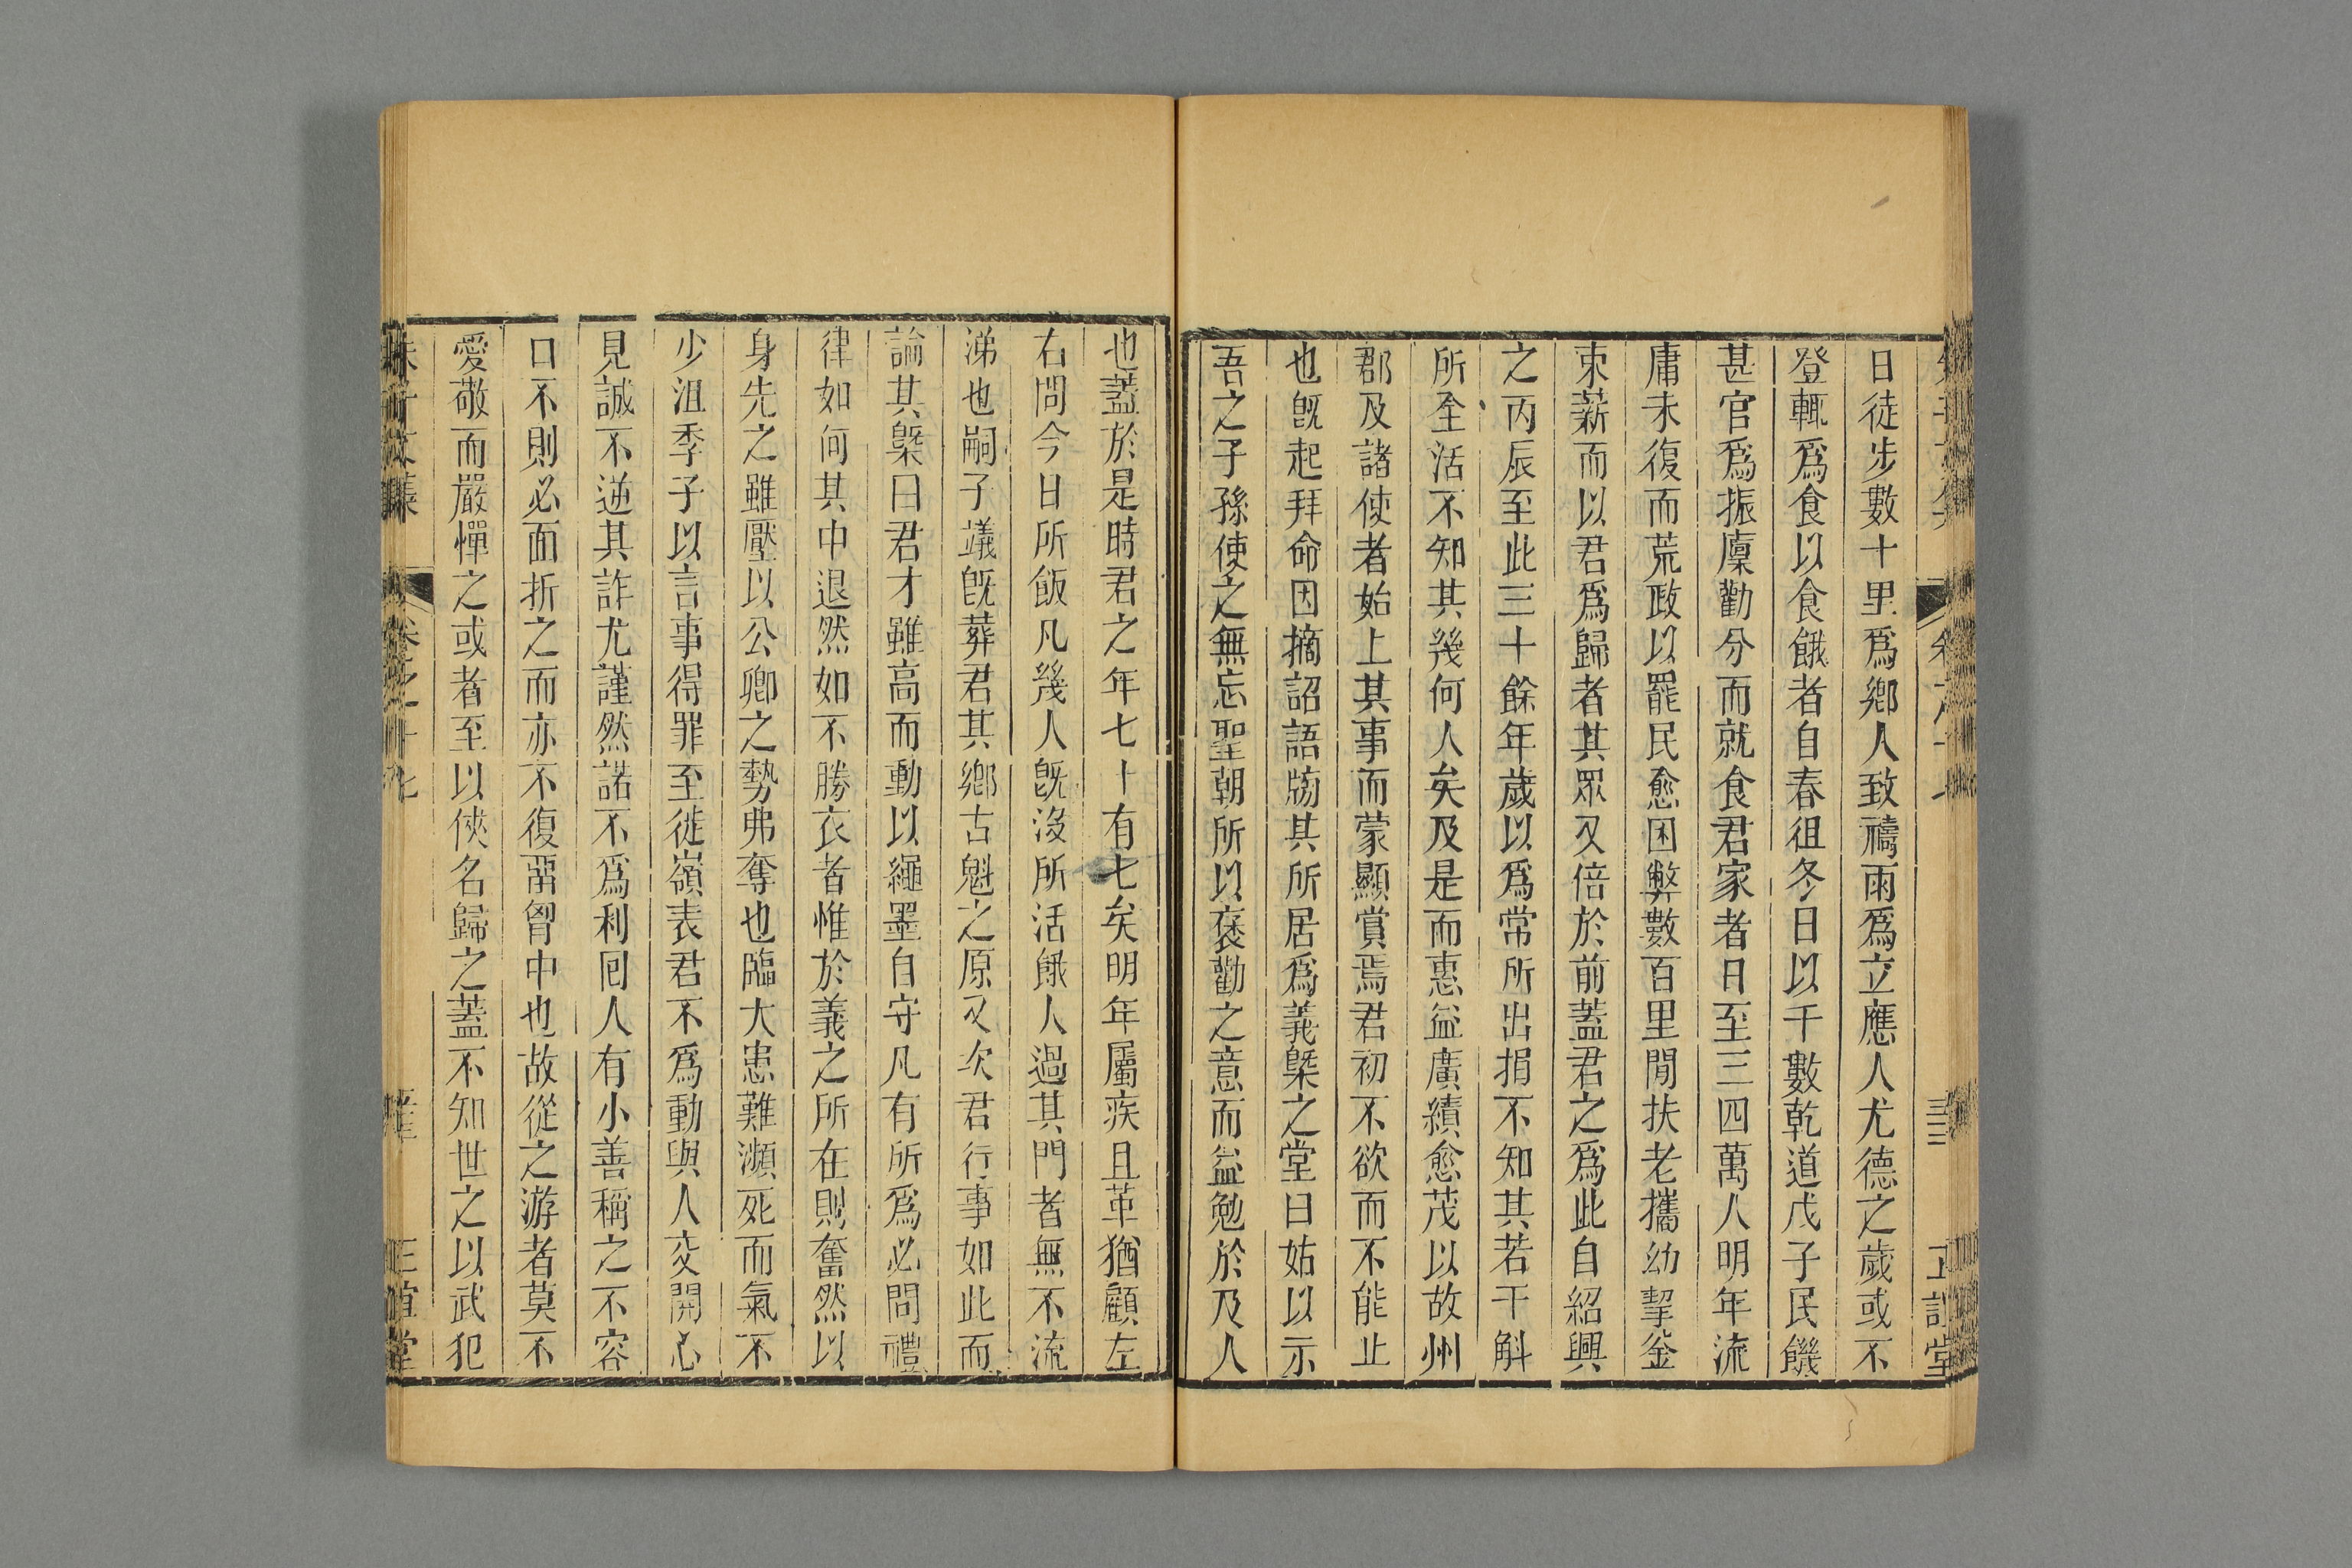 日徒步數十里爲鄕人致禱雨爲立應人尤德之歲或不
登輒爲食以食餓者自春徂冬日以千數乾道戊子民饑
甚官爲振廩勸分而就食君家者日至三四萬人明年流
庸未復而荒政以罷民愈困弊數百里閒扶老攜幼挈釜
束薪而以君爲歸者其眾又倍於前蓋君之爲此自紹興
之丙辰至此三十餘年歲以爲常所出捐不知其若干斛
所全活不知其幾何人矣及是而惠益廣績愈茂以故州
郡及諸使者始上其事而蒙顯賞焉君初不欲而不能止
也旣起拜命因摘詔語牓其所居爲義槩之堂曰姑以示
吾之子孫使之無忘聖朝所以褒勸之意而益勉於及人
也蓋於是時君之年七十有七矣明年屬疾且革猶顧左
右問今日所飯凡幾人旣沒所活餓人過其門者無不流
涕也嗣子議旣葬君其鄕古魁之原又次君行事如此而
論其槩曰君才雖高而動以繩墨自守凡有所爲必問禮
律如何其中退然如不勝衣者惟於義之所在則奮然以
身先之雖壓以公卿之勢弗奪也臨大患難瀕死而氣不
少沮季子以言事得罪至徙嶺表君不爲動與人交開心
見誠不逆其詐尤謹然諾不爲利囘人有小善稱之不容
口不則必面折之而亦不復畱胷中也故從之游者莫不
愛敬而嚴憚之或者至以俠名歸之蓋不知世之以武犯